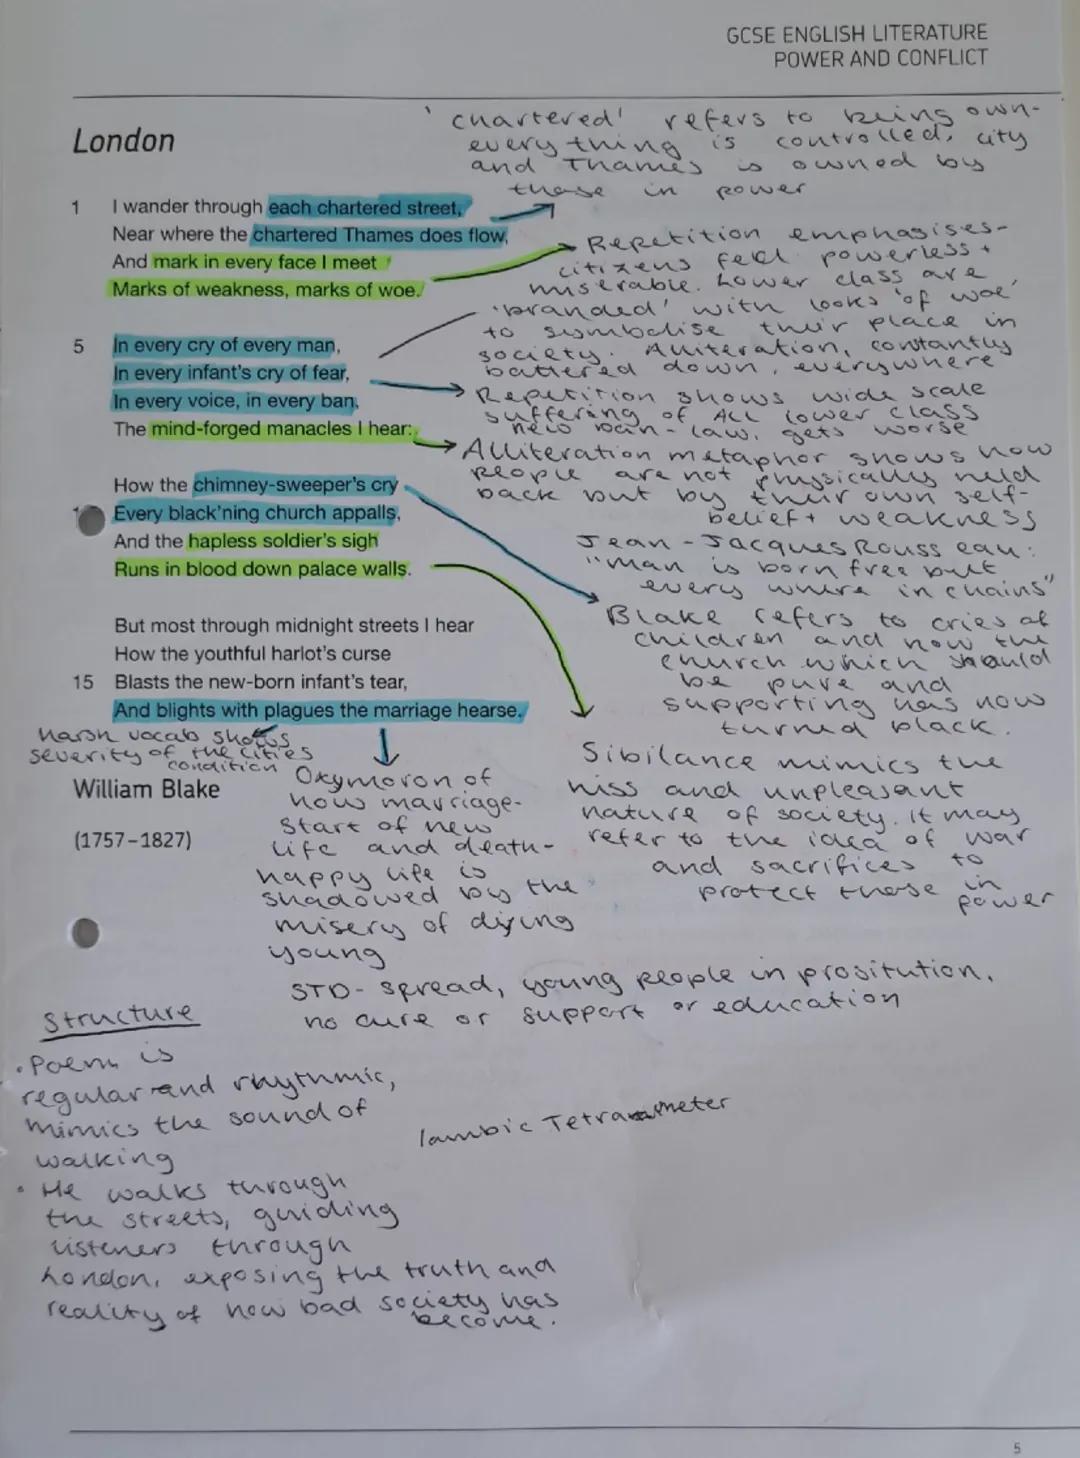 GCSE ENGLISH LITERATURE
POWER AND CONFLICT
London
'chartered' refers to being own-
everything is controlled, city
and Thames is owned by
those in power
1 I wander through each chartered street,
Near where the chartered Thames does flow,
And mark in every face I meet
Marks of weakness, marks of woe.
Repetition emphasises-
citizens feel powerless +
miserable. Lower class are
'branded' with looks 'of woe'
to symbolise their place in
society. Alliteration, contantly
battered down, everywhere
5 In every cry of every man,
In every infant's cry of fear,
In every voice, in every ban,
The mind-forged manacles I hear:
Repetition shows wide scale
suffering of ALL lower class
new ban-law, gets worse
Alliteration metaphor shows how
people are not physically held
back but by their own self-
belief + weakness
Jean-Jacques Rousseau:
"man is born free but
every where in chains"
How the chimney-sweeper's cry
Every black'ning church appalls,
And the hapless soldier's sigh
Runs in blood down palace walls.
Blake refers to cries of
children and how the
church which should
be pure and
supporting has now
turned black.
But most through midnight streets I hear
How the youthful harlot's curse
15 Blasts the new-born infant's tear,
And blights with plagues the marriage hearse.
Harsh vocab shows
severity of the cities
condition
Sibilance mimics the
hiss and unpleasant
nature of society. It may
refer to the idea of war
and sacrifices to
protect those in
power
William Blake
(1757–1827)
Oxymoron of
how marriage-
start of new
life and death-
happy life is
shadowed by the
misery of dying
young
STD- spread, young people in prositution,
no cure or support or education
Structure
• Poem is
regular and rhythmic,
mimics the sound of
walking
Iambic Tetrameter
• He walks through
the streets, guiding
listeners through
London, exposing the truth and
reality of how bad society has
become.
5